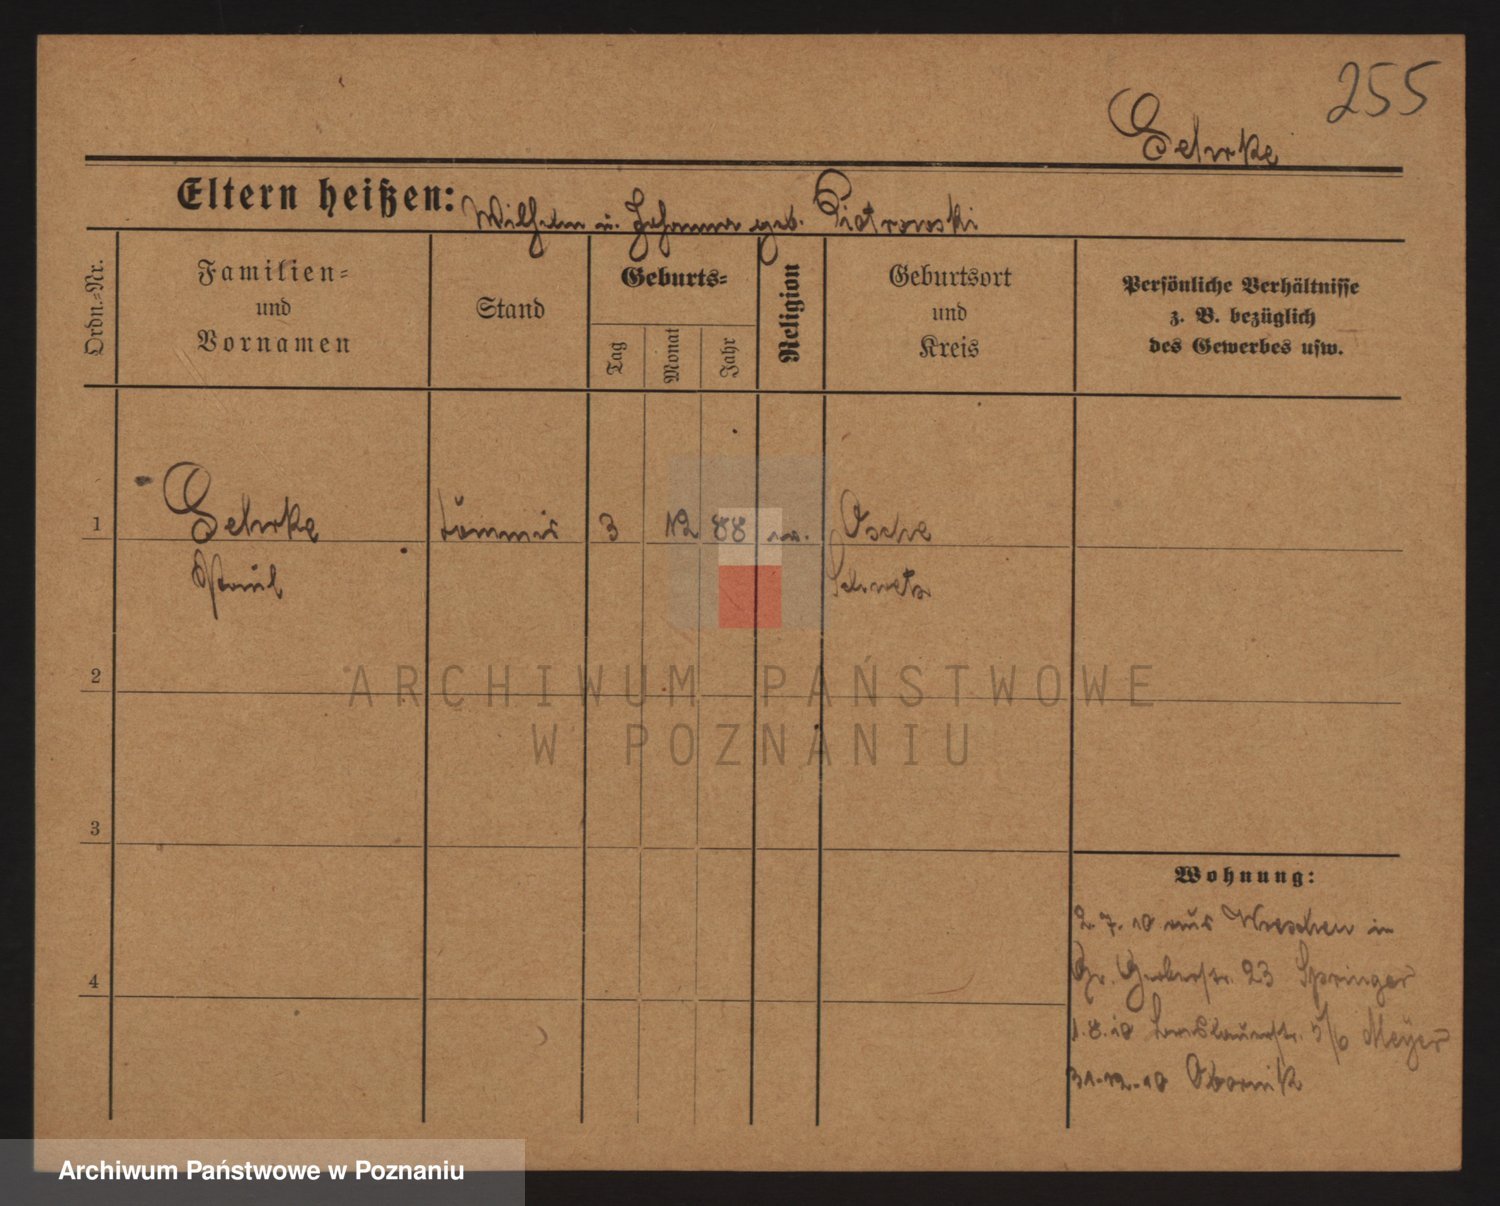 255
Gehrke
Eltern heißen: Wilhelm u. Johanna geb. Piotrowski
Ordn.=Nr.
Familien=
und
Vornamen
Stand
Geburts=
Tag
Monat
Jahr
Religion
Geburtsort
und
Kreis
Persönliche Verhältnisse
z. B. bezüglich
des Gewerbes usw.
1 Gehrke 3 12 88 Osche
Paul Schwetz
2
ARCHIWUM PAŃSTWOWE
W POZNANIU
3
Wohnung:
2.7.10 aus Wreschen in
Gr. Gerberstr. 23 Springer
4
1.8.10 5/6 Meyer
31.12.10 Obornik
Archiwum Państwowe w Poznaniu